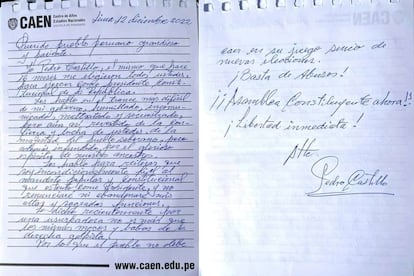 CAEN
Centro de Altos
Estudios Nacionales
Lima, 12 diciembre 2022
Querido pueblo peruano grandioso
y paciente.
Yo, Pedro Castillo, el mismo que hace
16 meses me eligieron todos ustedes,
para ejercer como presidente consti-
tucional de la república.
Les hablo en el trance más difícil
de mi gobierno, humillado, incomu-
nicado, maltratado y secuestrado,
pero aún así revestido de la con-
fianza y lucha de ustedes, de la
majestad del pueblo soberano, pero
además infundido por el glorioso
espíritu de nuestros ancestros.
Les hablo para reiterar que
soy incondicionalmente fiel al
mandato popular y constitucional
que ostento como presidente, y no
renunciaré ni abandonaré mis
altas y sagradas funciones.
Lo dicho recientemente por
una usurpadora no es más que
los mismos mocos y babas de la
derecha golpista.
Por lo que el pueblo no debe
www.caen.edu.pe
caer en su juego sucio de
nuevas elecciones.
¡Basta de Abusos!
¡¡Asamblea Constituyente ahora!!
¡Libertad inmediata!
Atte
Pedro Castillo